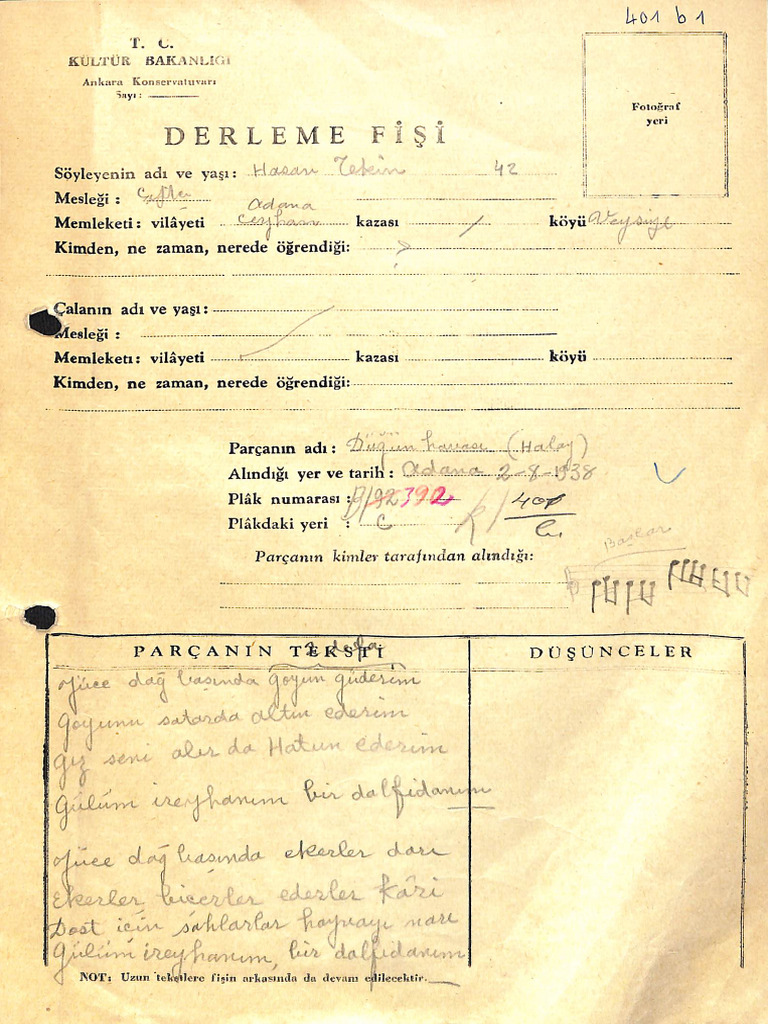 401 b 1
T. C.
KÜLTÜR BAKANLIĞI
Ankara Konservatuvarı
Sayı:
Fotoğraf
yeri
DERLEME FİŞİ
Söyleyenin adı ve yaşı: Hasan Tekin 42
Mesleği: Çiftçi
Adana
Memleketi: vilâyeti Ceyhan kazası / köyü Veysiye
Kimden, ne zaman, nerede öğrendiği:
Çalanın adı ve yaşı:
Mesleği:
Memleketi: vilâyeti kazası köyü
Kimden, ne zaman, nerede öğrendiği:
Parçanın adı: Düğün havası (Halay)
Alındığı yer ve tarih: Adana 2-8-1938
Plâk numarası: 392 401
Plâkdaki yeri : C
Başlar
Parçanın kimler tarafından alındığı:
PARÇANIN TEKSTİ DÜŞÜNCELER
2 defa
Yüce dağ başında goyun güderim
Goyunu satarda altın ederim
Gız seni alır da Hatun ederim
Gülüm ireyhanım bir dalfidanım
Yüce dağ başında ekerler darı
Ekerler biçerler ederler kâri
Dost için sahlarlar hayvayı narı
Gülüm ireyhanım, bir dalfidanım
NOT: Uzun tekstlere fişin arkasında da devam edilecektir.